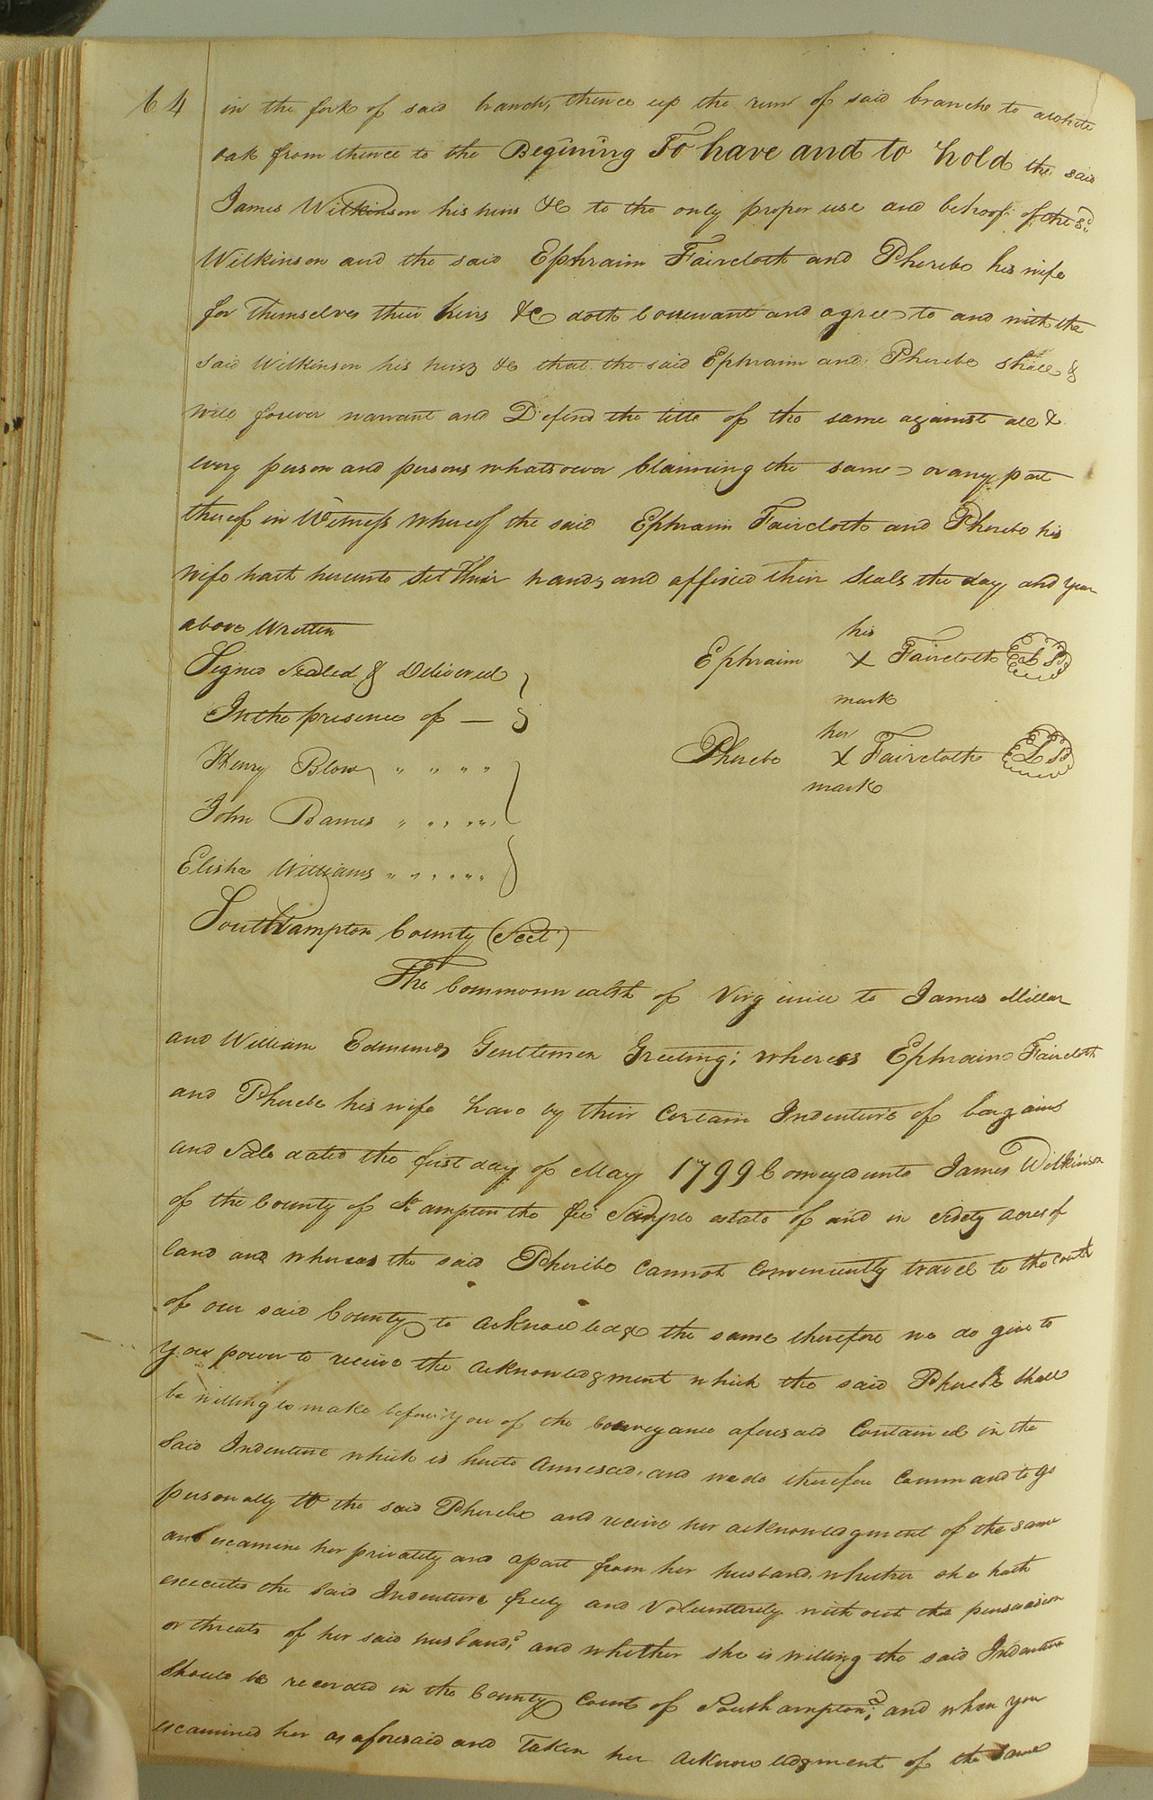 64
in the fork of said branch, thence up the run of said branche to awhite
oak from thence to the Begining To have and to hold the said
James Wilkinson his heirs &c to the only proper use and behoof of the sd.
Wilkinson and the said Ephraim Faircloth and Pherebe his wife
for themselves their heirs &c doth Covenant and agree to and with the
said Wilkinson his heirs &c that the said Ephraim and Pherebe shall &
will forever warrant and Defend the title of the same against all &
every person and persons whatsoever Claiming the same or any part
thereof in Witness whereof the said Ephraim Faircloth and Pherebe his
wife hath hereunto Set their hands and affixed their Seals the day and year
above Written
Signed Sealed & Delivered
In the presence of —
his
Ephraim X Faircloth LS
mark
her
Pherebe X Faircloth LS
mark
Henry Blow " " " "
John Barnes " " " " "
Elisha Williams " " " " " "
Southampton County (Sect)
The Commonwealth of Virginia to James Millar
and William Edmunds Gentlemen Greeting; whereas Ephraim Faircloth
and Pherebe his wife have by their Certain Indenture of bargains
and Sale dated the first day of May 1799 Conveyed unto James Wilkinson
of the County of S.ampton the fee Simple estate of and in Sixty acres of
land and whereas the said Pheribe Cannot Conveniently travel to the Court
of our said County to Acknowledge the same therefore we do give to
you power to receive the Acknowledgment which the said Pherebe shall
be willing to make before you of the Conveyance aforesaid Contained in the
Said Indenture which is hereto Annexed, and we do therefore Command to go
personally to the said Pherebe and receive her acknowledgment of the same
and examine her privately and apart from her husband, whether she hath
executed the said Indenture freely and Voluntarily without the persuasion
or threats of her said husband? and whether she is willing the said Indenture
Should be recorded in the County Court of Southampton? and when you
examined her as aforesaid and Taken her Acknowledgment of the same